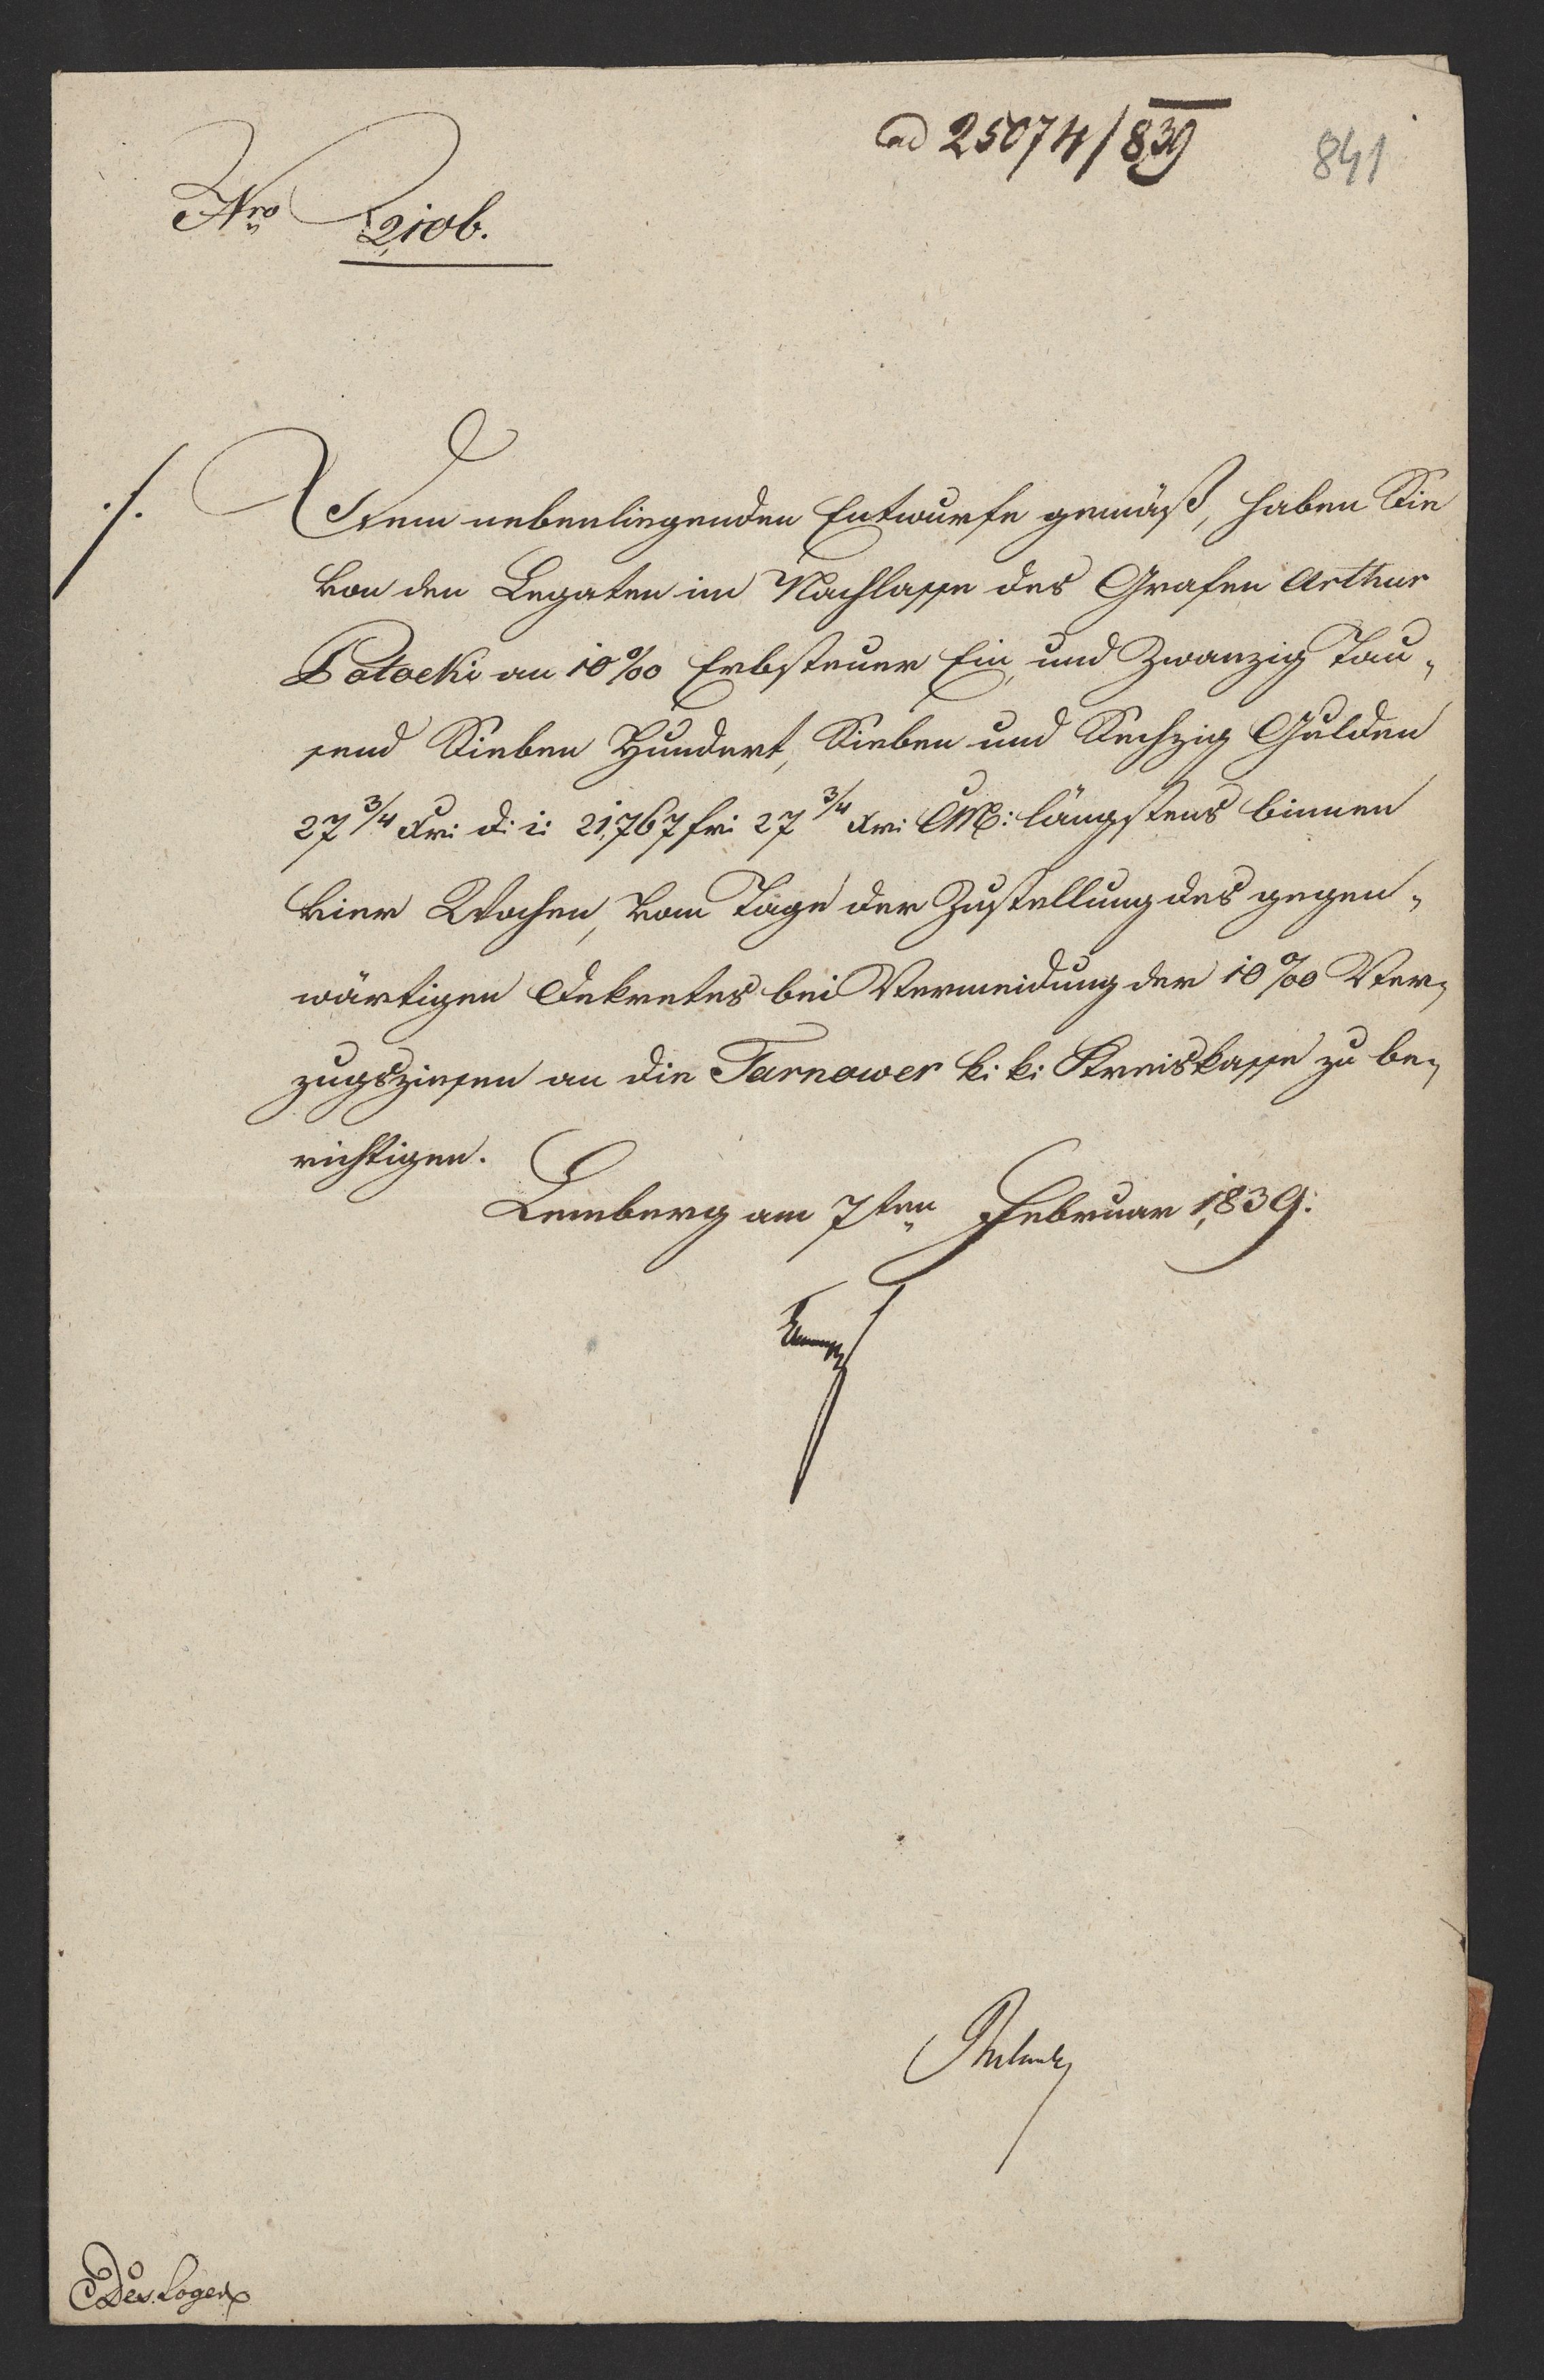 ad 25074/839
841
Nro 2106.
./. Dem nebenliegenden Entwurfe gemäß, haben Sie
von den Legaten im Nachlasse des Grafen Arthur
Potocki an 10 %00 Erbsteuer Ein und Zwanzig Tau„
send Sieben Hundert, Sieben und Sechzig Gulden
27 3/4 Xr: d: i: 21,767 fr: 27 3/4 Xr: CM: längstens binnen
vier Wochen, vom Tage der Zustellung des gegen„
wärtigen Dekretes bei Vermeidung der 10 %00 Ver„
zugszinsen an die Tarnower k: k: Kreiskasse zu be„
richtigen.
Lemberg am 7ten Februar 1839.